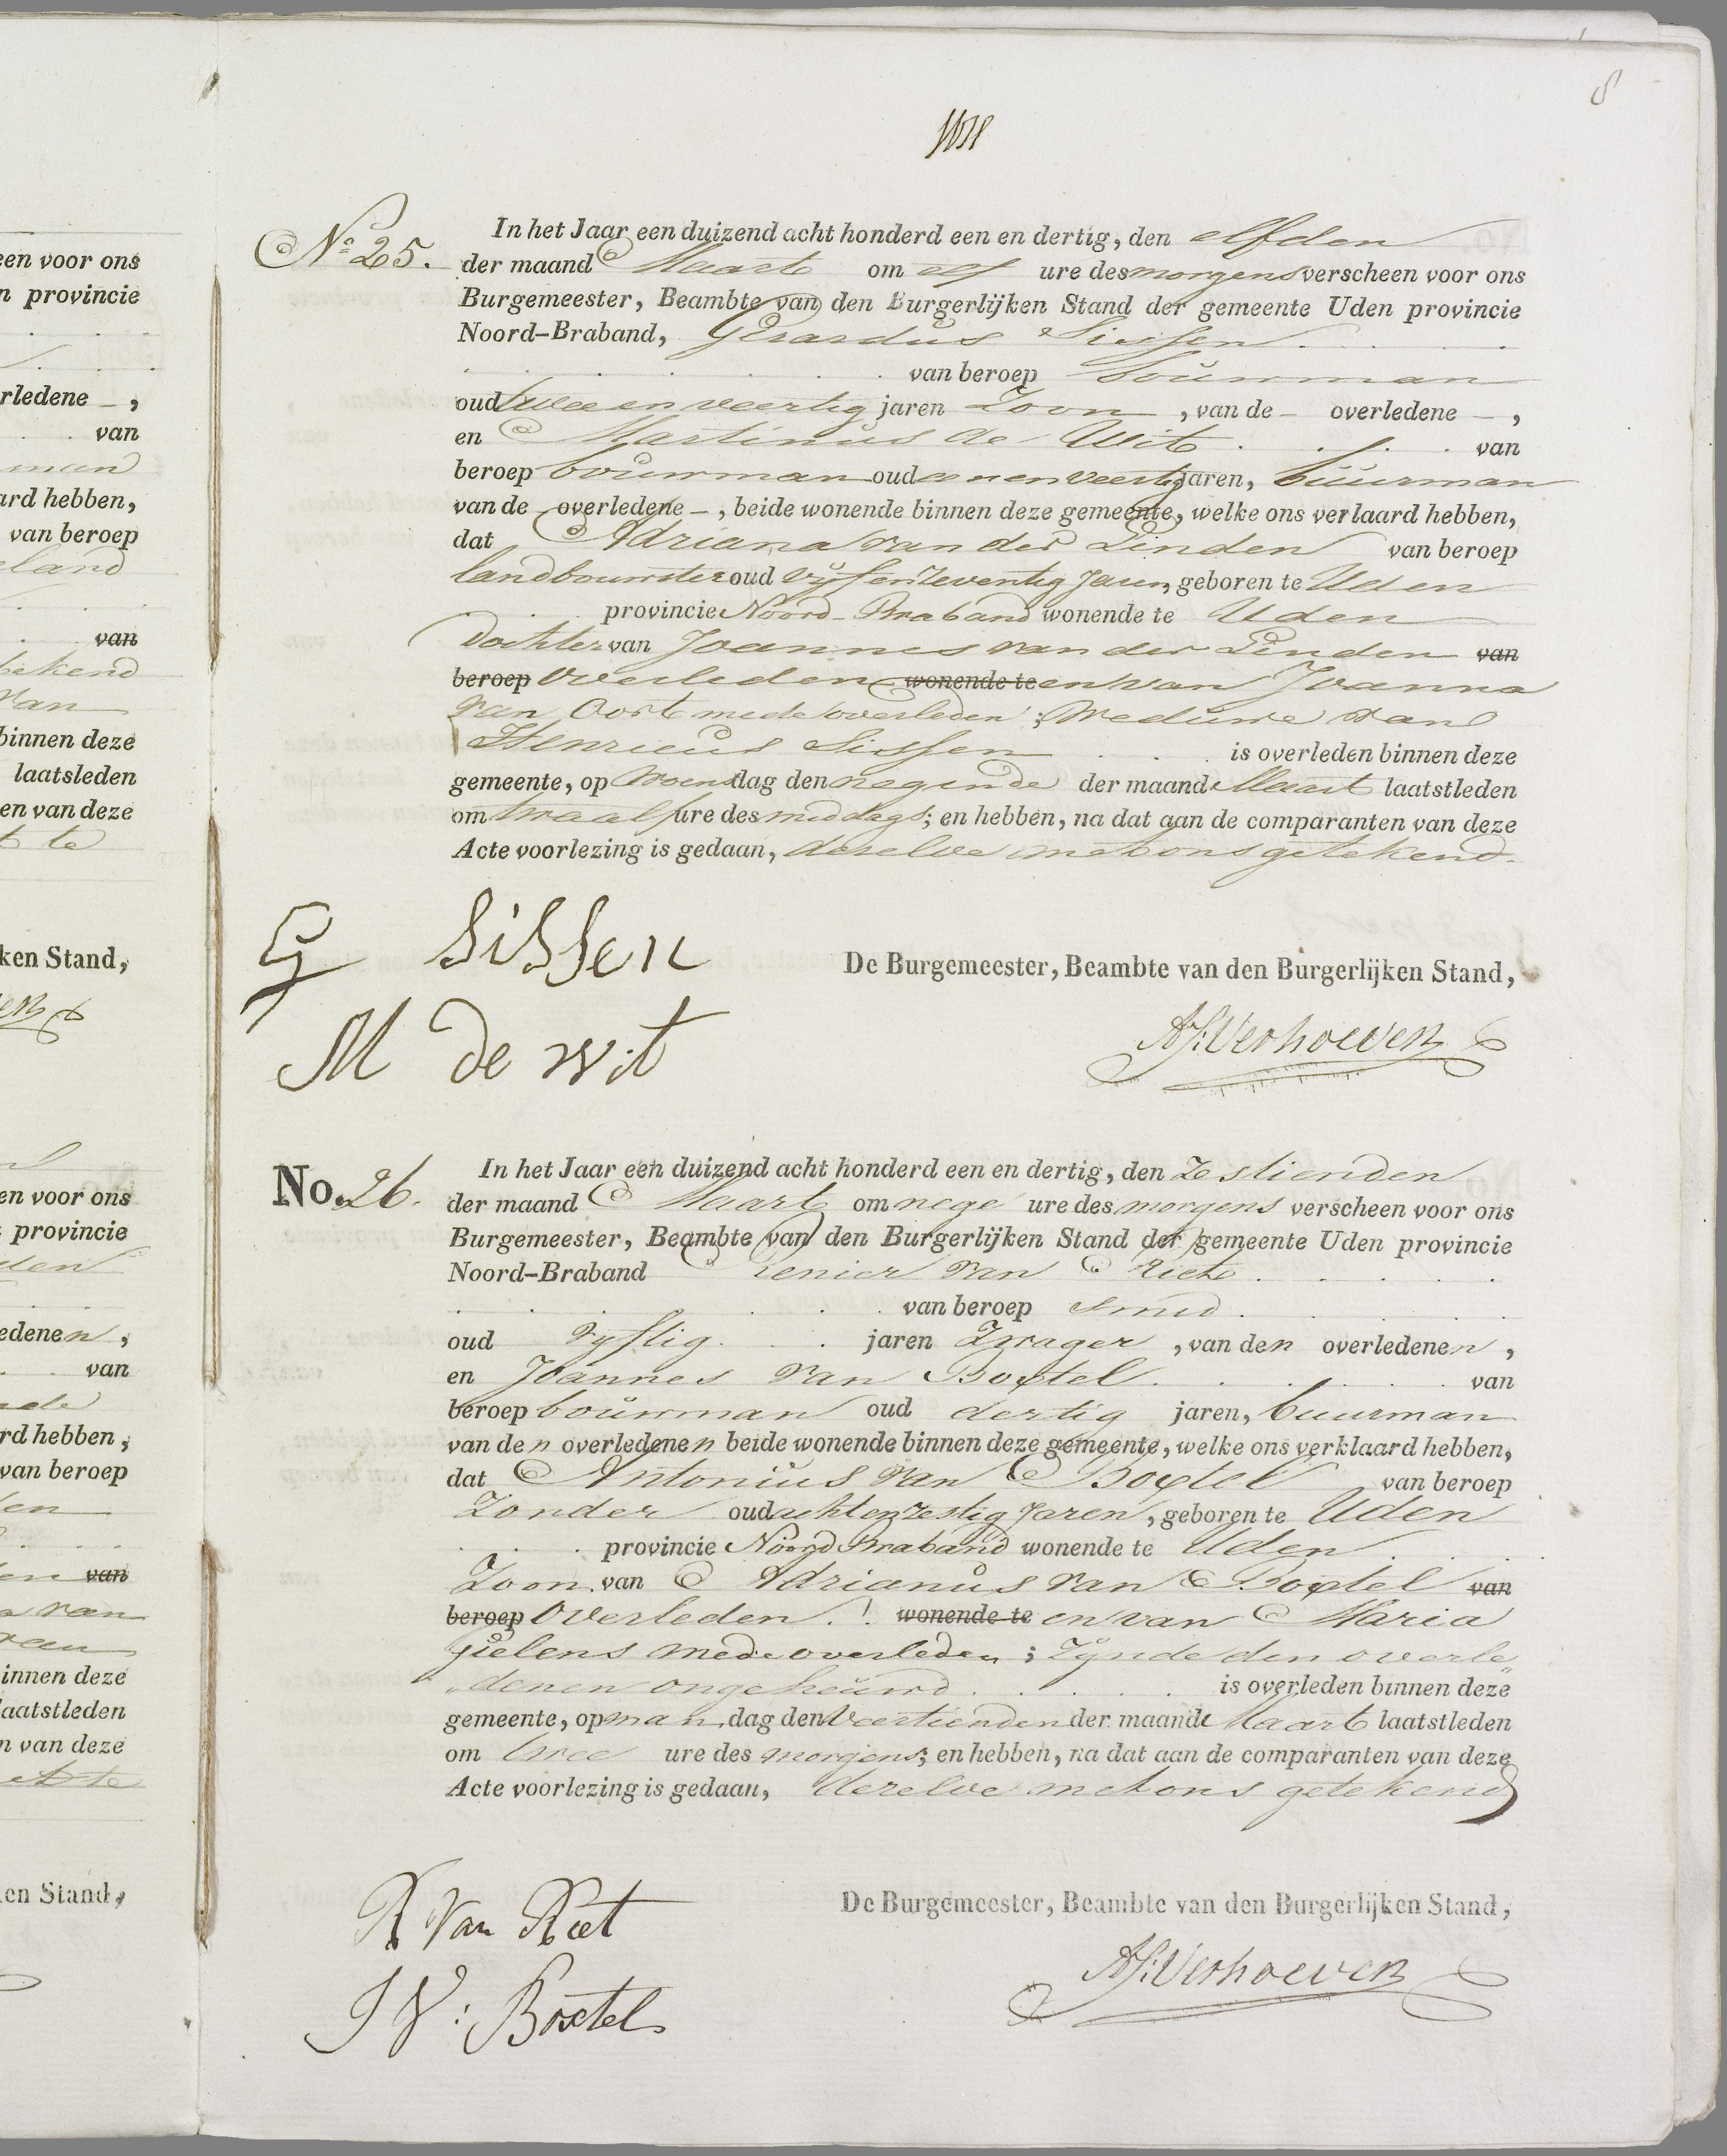 8
No 25.
In het Jaar een duizend acht honderd een en dertig, den elfden
der maand Maart om elf ure des morgens verscheen voor ons
Burgemeester, Beambte van den Burgerlijken Stand der gemeente Uden provincie
Noord-Braband, Gerardus Sissen
van beroep bouwman
oud twee en veertig jaren Zoon, van de overledene,
en Martinus de Wit van
beroep bouwman oud een en veertig jaren, buurman
van de overledene, beide wonende binnen deze gemeente, welke ons verlaard hebben,
dat Adriana van der Linden van beroep
landbouwster oud vijf en zeventig Jaren, geboren te Uden
provincie Noord-Braband wonende te Uden
Dochter van Joannes van der Linden van
beroep overleden wonende te en van Joanna
van Oort mede overleden; Weduwe van
Henricus Sissen is overleden binnen deze
gemeente, op woensdag den negende der maand Maart laatstleden
om twaalf ure des middags; en hebben, na dat aan de comparanten van deze
Acte voorlezing is gedaan, dezelve met ons getekend.
G Sissen
De Burgemeester, Beambte van den Burgerlijken Stand,
M de wit
Verhoeven
No. 26.
In het Jaar een duizend acht honderd een en dertig, den Zestienden
der maand Maart om nege ure des morgens verscheen voor ons
Burgemeester, Beambte van den Burgerlijken Stand der gemeente Uden provincie
Noord-Braband Renier van Riet
van beroep smid
oud vyftig jaren Zwager, van den overledenen,
en Joannes van Boxtel van
beroep bouwman oud dertig jaren, buurman
van den overledenen beide wonende binnen deze gemeente, welke ons verklaard hebben,
dat Antonius van Boxtel van beroep
Zonder oud acht en zestig Jaren, geboren te Uden
provincie Noord Braband wonende te Uden
Zoon van Adrianus van Boxtel van
beroep overleden wonende te en van Maria
Gielens mede overleden; Zynde den overle„
„denen ongehuwd is overleden binnen deze
gemeente, op maandag den Veertienden der maand Maart laatstleden
om twee ure des morgens; en hebben, na dat aan de comparanten van deze
Acte voorlezing is gedaan, dezelve met ons getekend
R Van Riet
De Burgemeester, Beambte van den Burgerlijken Stand,
J V: Boxtel
Verhoeven